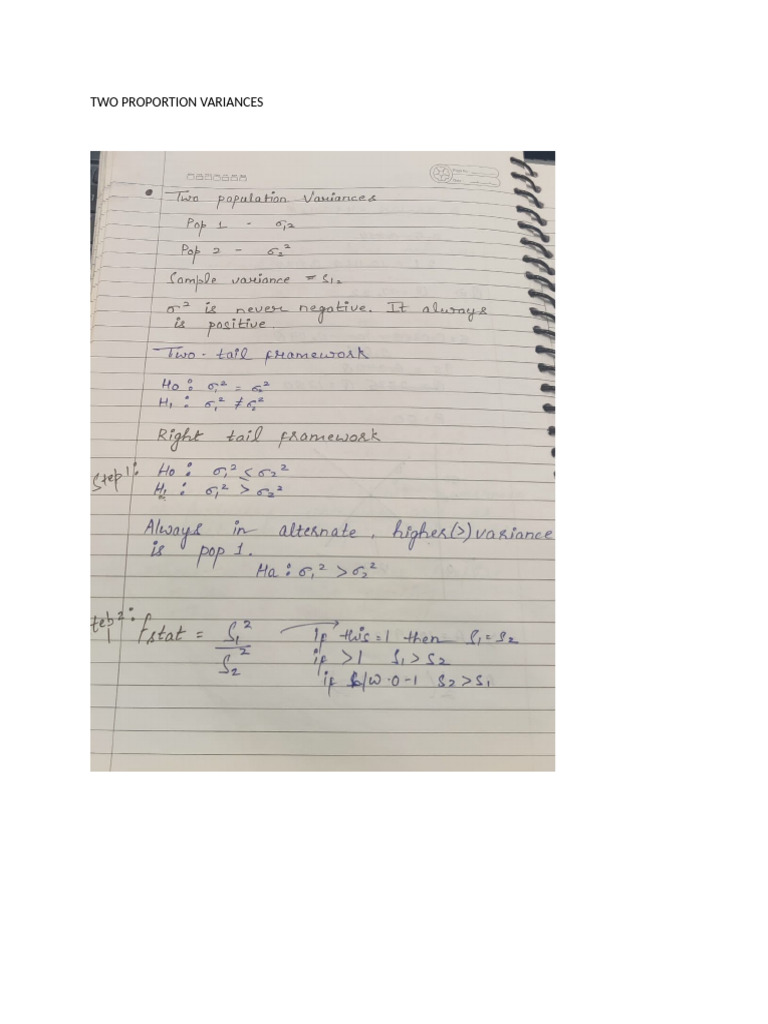 TWO PROPORTION VARIANCES
• Two population Variances
Pop 1 - σ₁2
Pop 2 - σ₂²
Sample variance = S₁₂
σ² is never negative. It always
is positive.
Two-tail framework
Ho : σ₁² = σ₂²
H₁ : σ₁² ≠ σ₂²
Right tail framework
Step 1: Ho : σ₁² ≤ σ₂²
H₁ : σ₁² > σ₂²
Always in alternate, higher(>) variance
is pop 1.
Ha : σ₁² > σ₂²
tep 2: fstat = S₁²/S₂² → If this = 1 then S₁ = S₂
if >1 S₁ > S₂
if b/w 0-1 S₂ > S₁